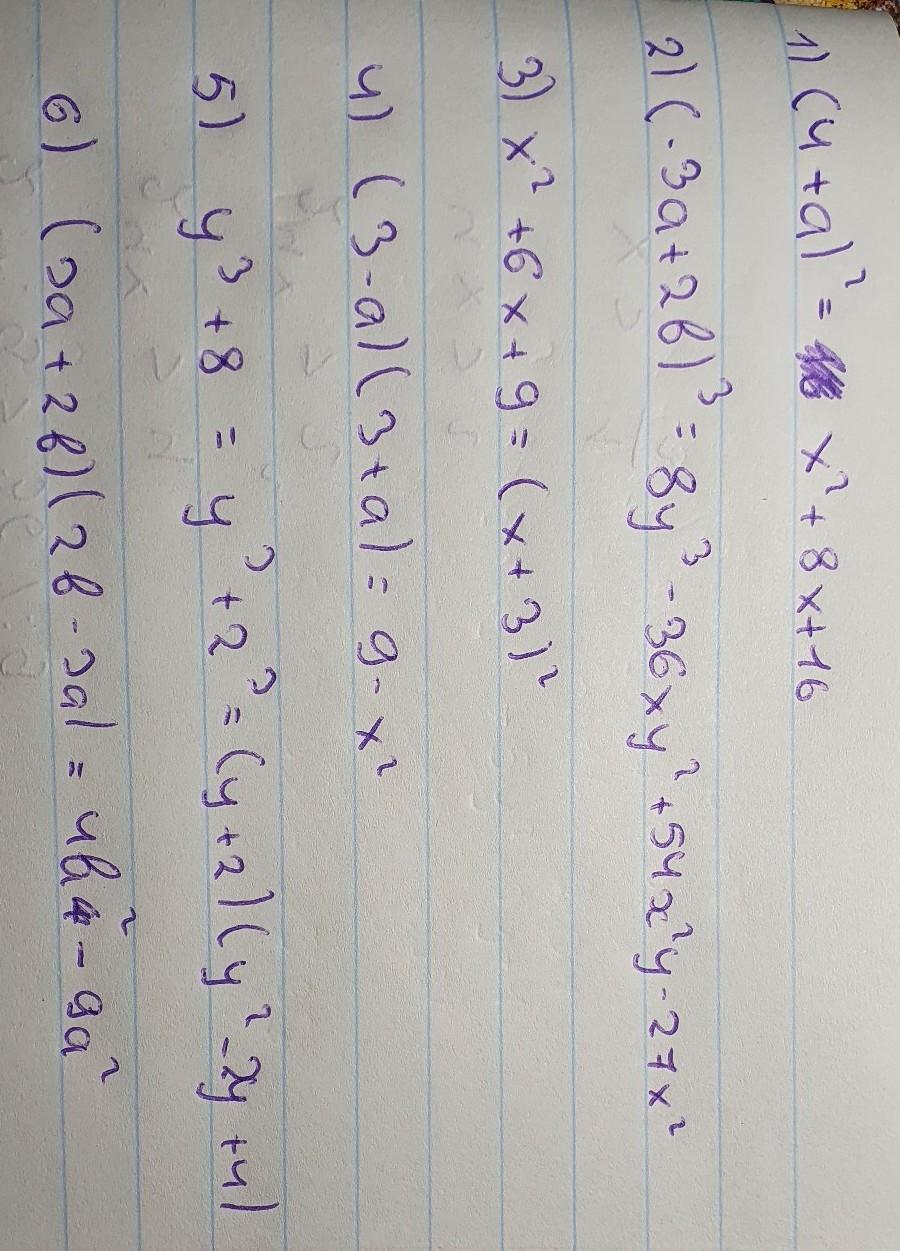 1) (4+a)² = x²+8x+16
2) (-3a+2b)³ = 8y³-36xy²+54x²y-27x²
3) x²+6x+9 = (x+3)²
4) (3-a)(3+a) = 9-x²
5) y³+8 = y³+2³ = (y+2)(y²-2y+4)
6) (3a+2b)(2b-3a) = 4b²-9a²